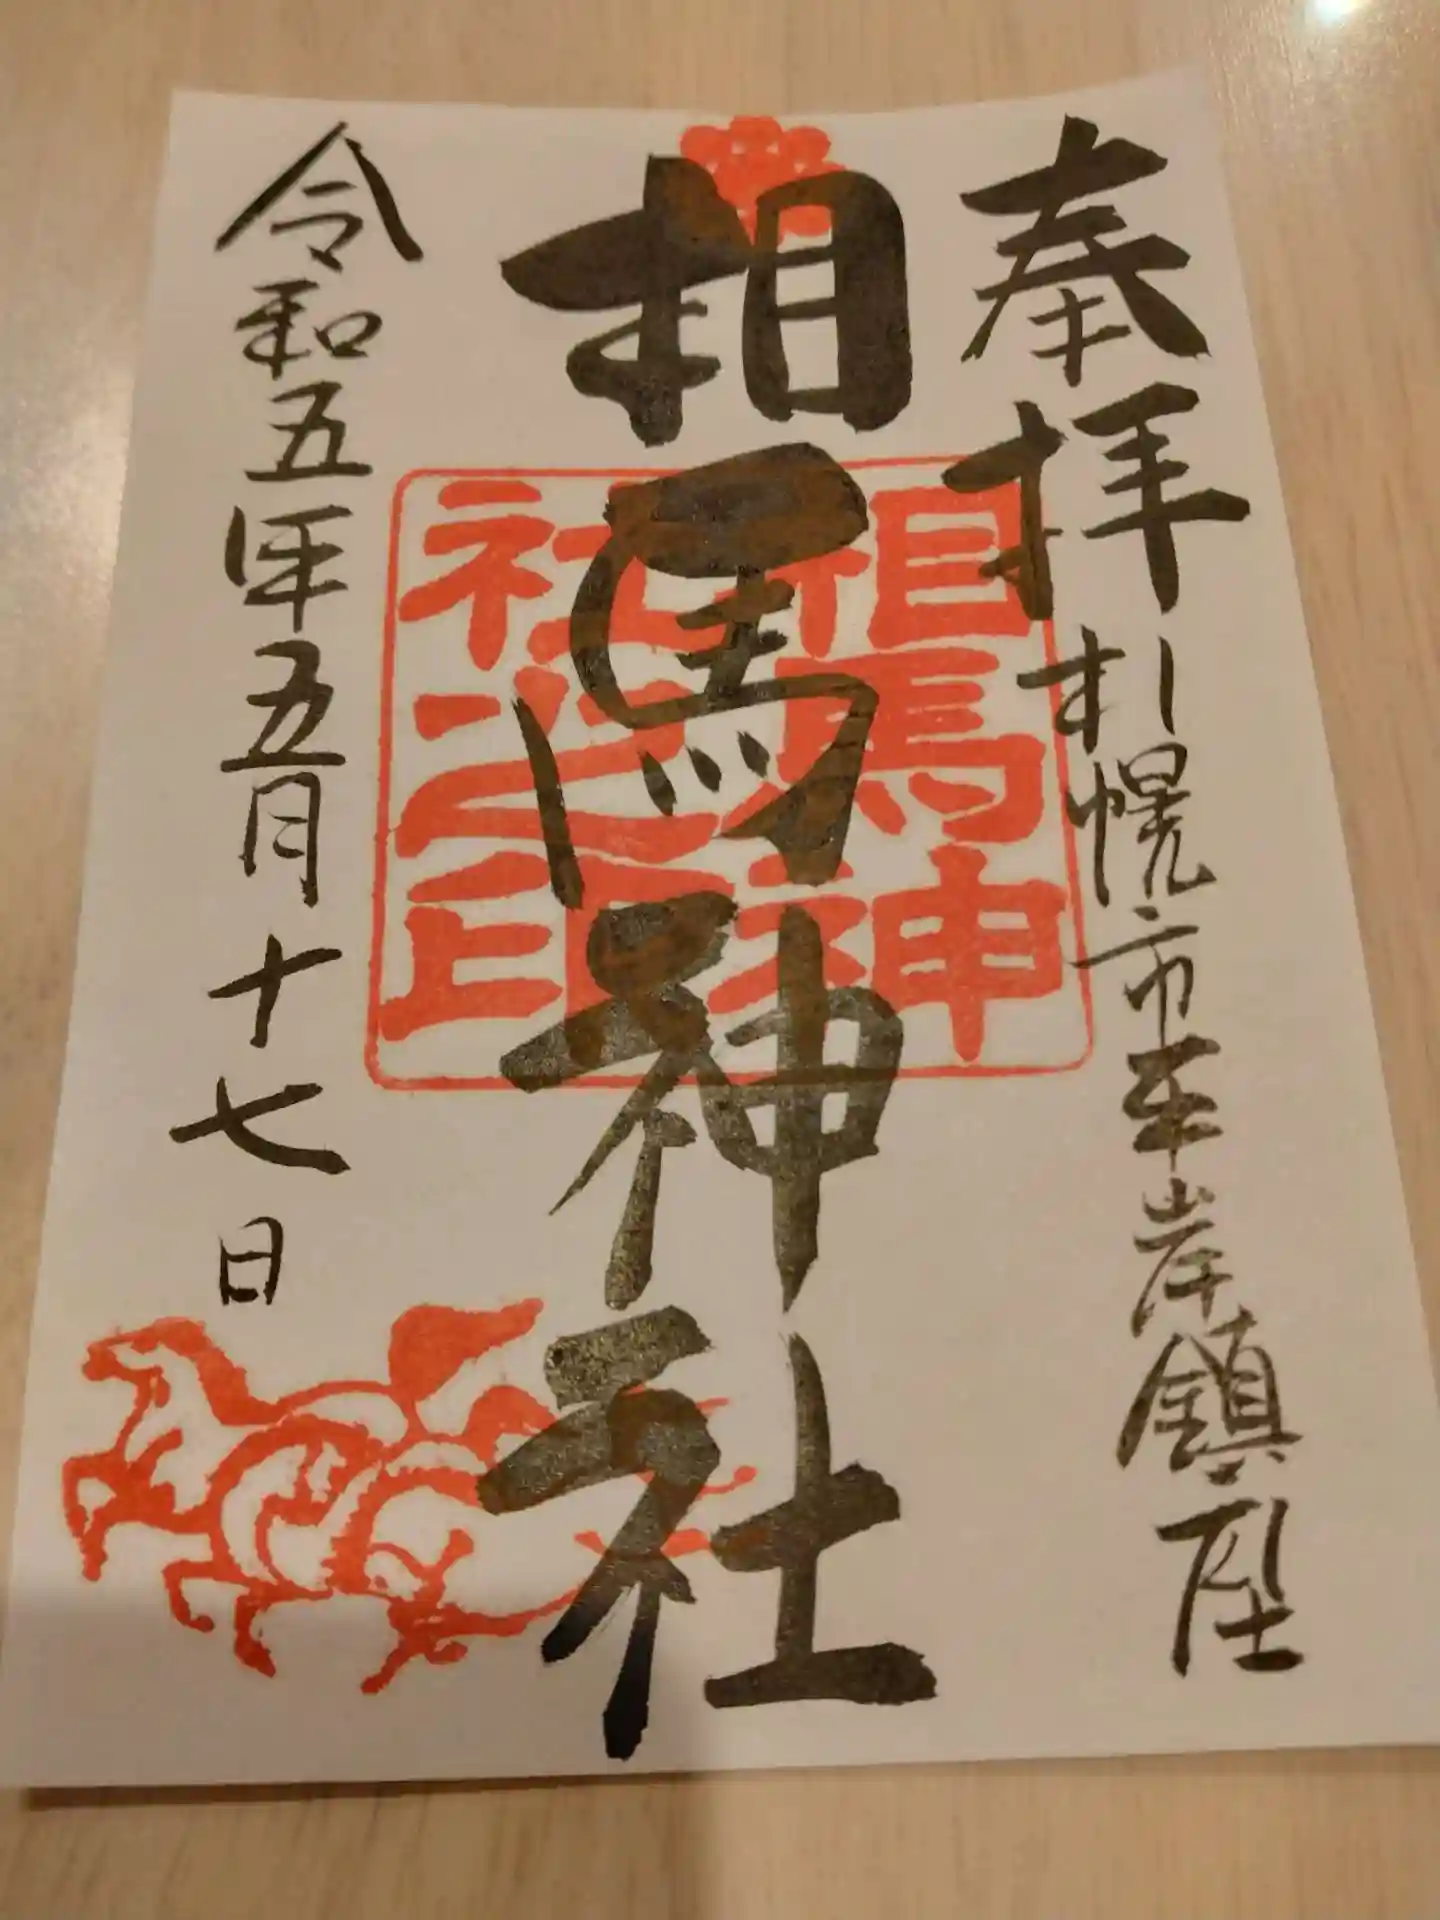 奉拝
札幌市平岸鎮座
相馬神社
相馬神
社之印
令和五年五月十七日